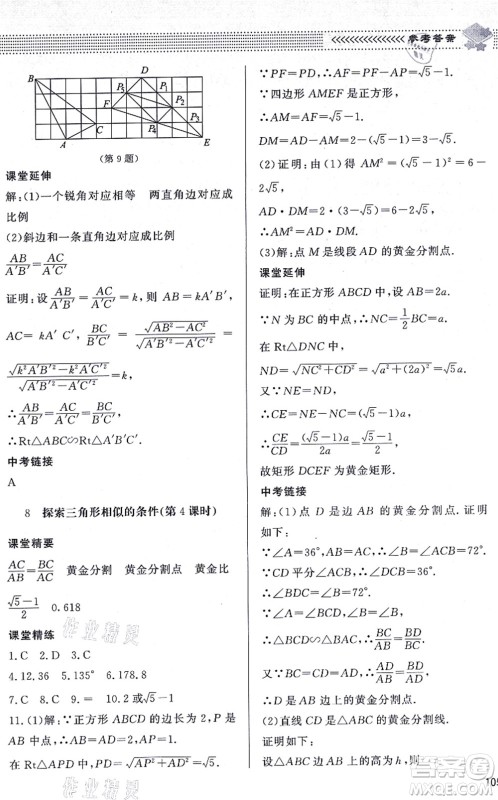 参考答案
B
D
P₅
P₁
F
P₂
C
P₄
P₃
A
E
(第9题)
课堂延伸
解:(1)一个锐角对应相等 两直角边对应成
比例
(2)斜边和一条直角边对应成比例
AB/A′B′=AC/A′C′
证明:设AB/A′B′=AC/A′C′=k,则AB=kA′B′,
AC=kA′C′,BC/B′C′=√(AB²−AC²)/√(A′B′²−A′C′²)=
√(k²A′B′²−k²A′C′²)/√(A′B′²−A′C′²)=k,
∴AB/A′B′=AC/A′C′=BC/B′C′.
∴Rt△ABC∽Rt△A′B′C′.
中考链接
A
8 探索三角形相似的条件(第4课时)
课堂精要
AC/AB=BC/AC 黄金分割 黄金分割点 黄金比
(√5−1)/2 0.618
课堂精练
1.C 2.D 3.C
4.12.36 5.135° 6.178.8
7.C 8.C 9.= 10.2或√5−1
11.(1)解:∵正方形ABCD的边长为2,P是
AB中点,∴在Rt△APD中,PD=√(AP²+AD²)=√5.
∵PF=PD,∴AF=PF−AP=√5−1.
∵四边形AMEF是正方形,
∴AM=AF=√5−1,
DM=AD−AM=2−(√5−1)=3−√5.
(2)证明:由(1)得AM²=(√5−1)²=6−2√5,
AD·DM=2(3−√5)=6−2√5,
∴AM²=AD·DM.
(3)解:点M是线段AD的黄金分割点.
课堂延伸
证明:在正方形ABCD中,设AB=2a.
∵N为BC的中点,∴NC=1/2BC=a.
在Rt△DNC中,
ND=√(NC²+CD²)=√(a²+(2a)²)=√5a.
又∵NE=ND,
∴CE=NE−NC=(√5−1)a.
∴CE/CD=(√5−1)a/2a=(√5−1)/2,
故矩形DCEF为黄金矩形.
中考链接
解:(1)点D是边AB的黄金分割点.证
明如下:
∵∠A=36°,AB=AC,∴∠B=∠ACB=72°.
∵CD平分∠ACB,∴∠DCB=36°.
∴∠BDC=∠B=72°.
∵∠A=∠BCD=36°,
∴△BDC∽△BCA.∴BC/AB=BD/BC.
又∵BC=CD=AD,∴AD/AB=BD/AD.
∴D是AB边上的黄金分割点.
(2)直线CD是△ABC的黄金分割线.
证明如下:
设△ABC的边AB上的高为h,则
105
作业精灵
作业精灵